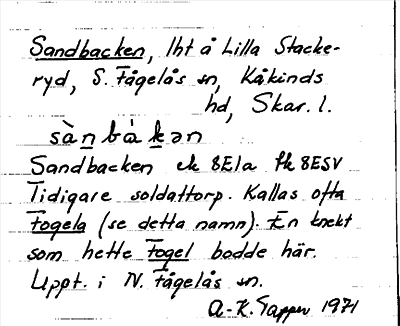 Sandbacken, lht å Lilla Stacke-
ryd, S. Fågelås sn, Kåkinds
hd, Skar. l.
sànbàkən
Sandbacken ek 8E1a fk 8E5V
Tidigare soldattorp. Kallas ofta
Fogela (se detta namn). En knekt
som hette Fogel bodde här.
Uppt. i N. Fågelås sn.
A-K. Tapper 1971